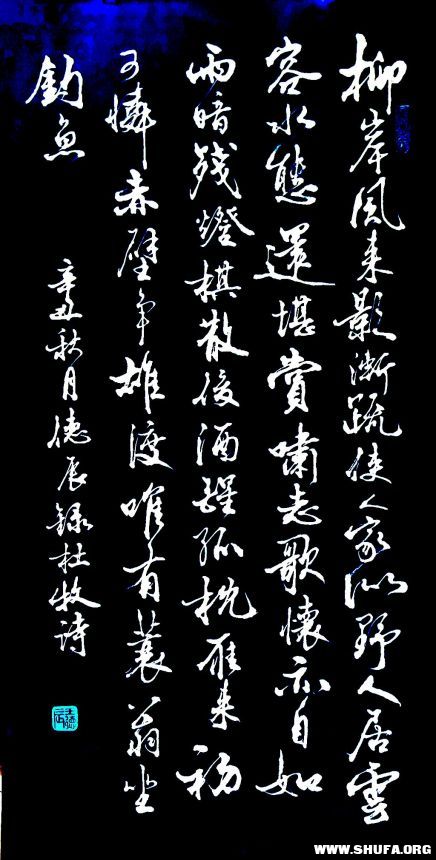 柳岸風来影漸疏使人家似野人居雲
容水態還堪賞嘯志歌懷亦自如
雨暗残燈棋散後酒醒孤枕雁来初
可憐赤壁争雄渡唯有蓑翁坐
釣魚
辛丑秋月德辰録杜牧詩
WWW.SHUFA.ORG